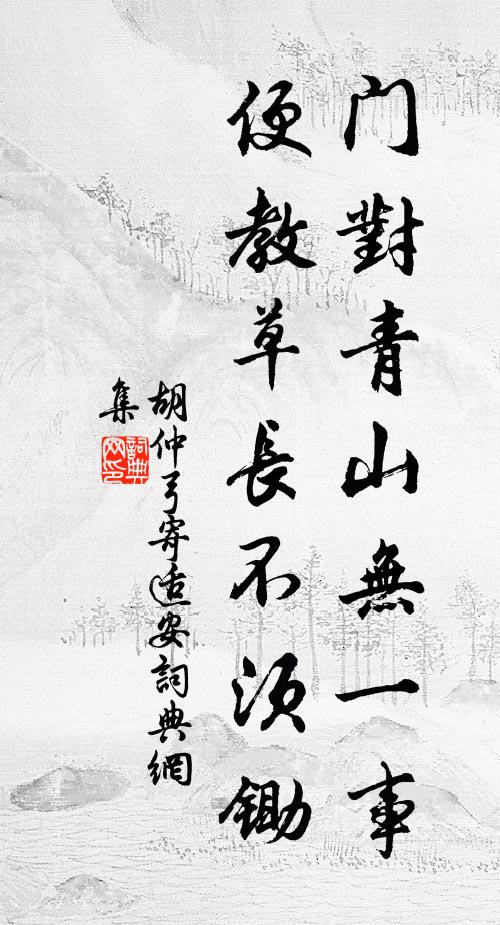 門對青山無一事
便教草長不須鋤
胡仲弓寄適安詞典網
集
詞典網印